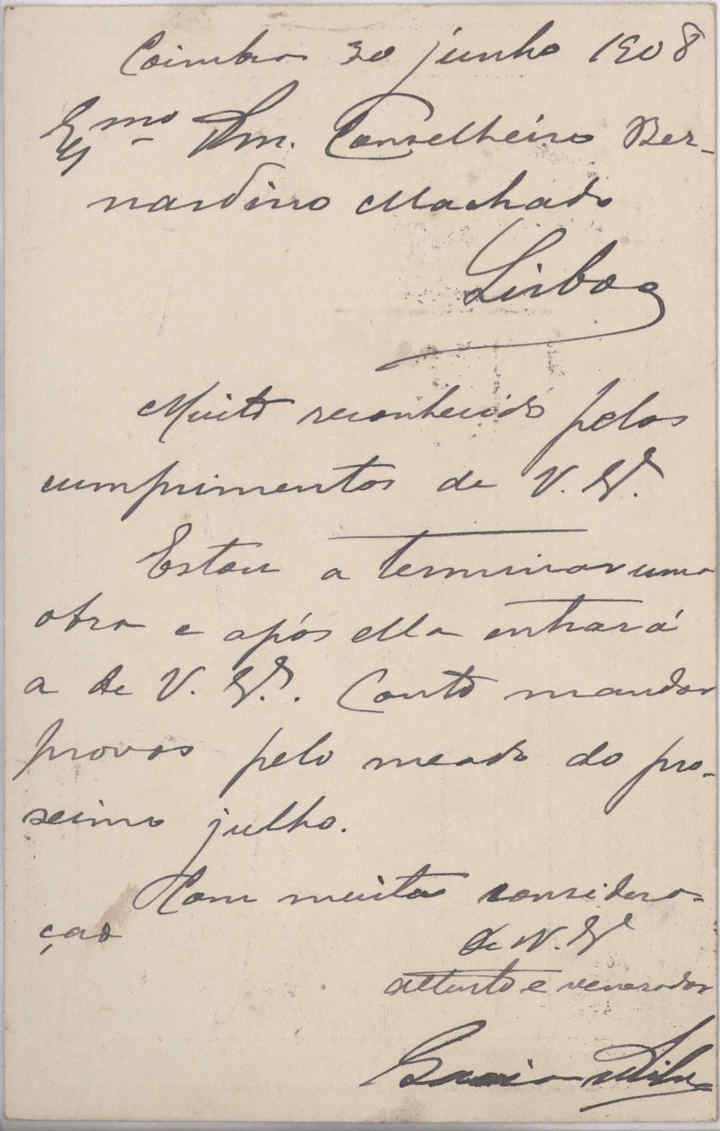 Coimbra 30 junho 1908
Exmo Snr. Conselheiro Ber-
nardino Machado
Lisboa
Muito reconhecido pelos
cumprimentos de V. Exª.
Estou a terminar uma
obra e após ella entrará
a de V. Exª. Conto mandar
provas pelo meado do pro-
ximo julho.
Com muita considera-
ção
de V. Exª
attento e venerador